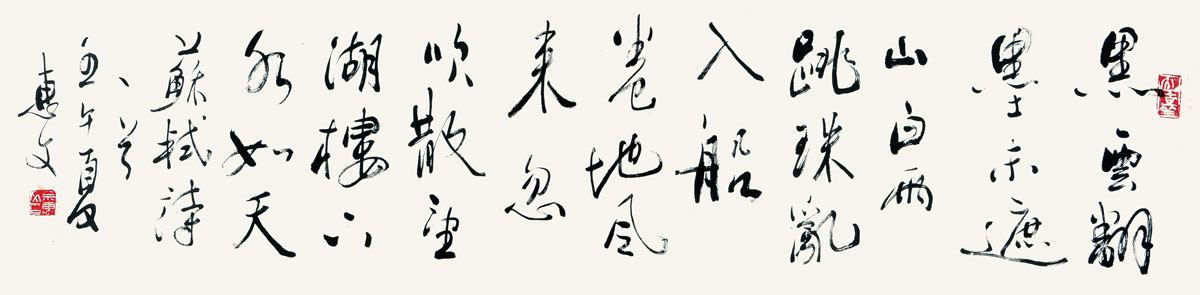 黑雲翻
墨未遮
山白雨
跳珠亂
入船
卷地風
来忽
吹散望
湖樓下
水如天
蘇軾詩
一首
壬午夏
惠文